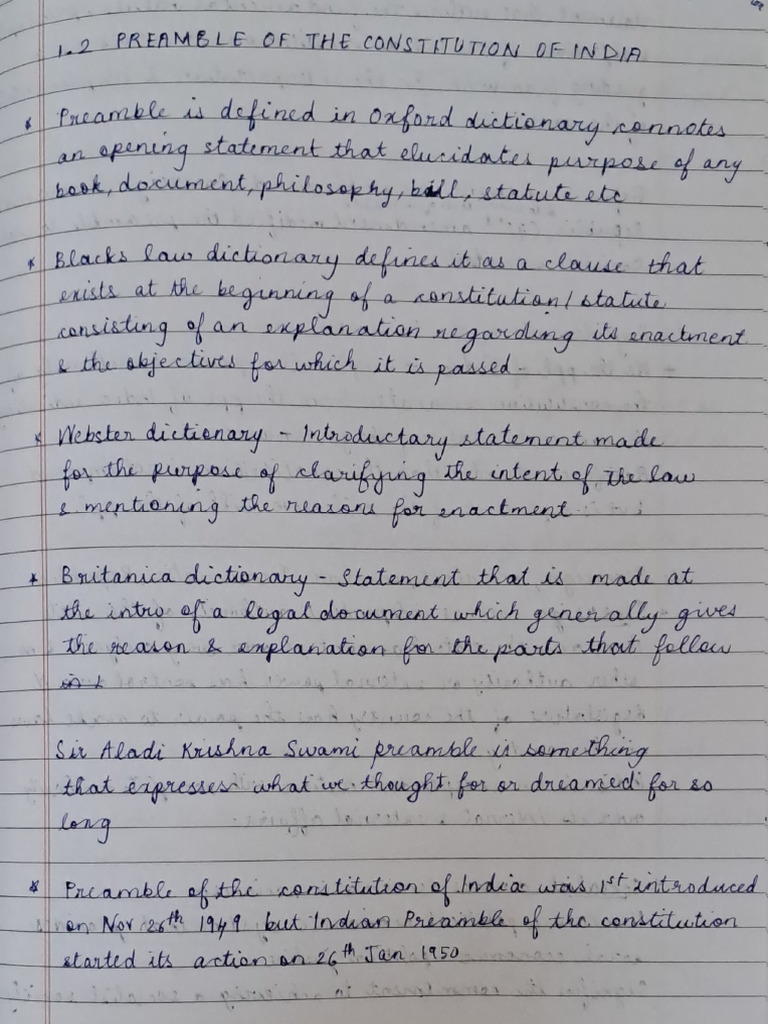 1.2 PREAMBLE OF THE CONSTITUTION OF INDIA
* Preamble is defined in Oxford dictionary connotes
an opening statement that elucidates purpose of any
book, document, philosophy, bill, statute etc
* Blacks law dictionary defines it as a clause that
exists at the beginning of a constitution/statute
consisting of an explanation regarding its enactment
& the objectives for which it is passed.
* Webster dictionary - Introductary statement made
for the purpose of clarifying the intent of the law
& mentioning the reasons for enactment
* Britanica dictionary - Statement that is made at
the intro of a legal document which generally gives
the reason & explanation for the parts that follow
Sir Aladi Krishna Swami preamble is something
that expresses what we thought for or dreamed for so
long
* Preamble of the constitution of India was 1st introduced
on Nov 26th 1949 but Indian Preamble of the constitution
started its action on 26th Jan 1950